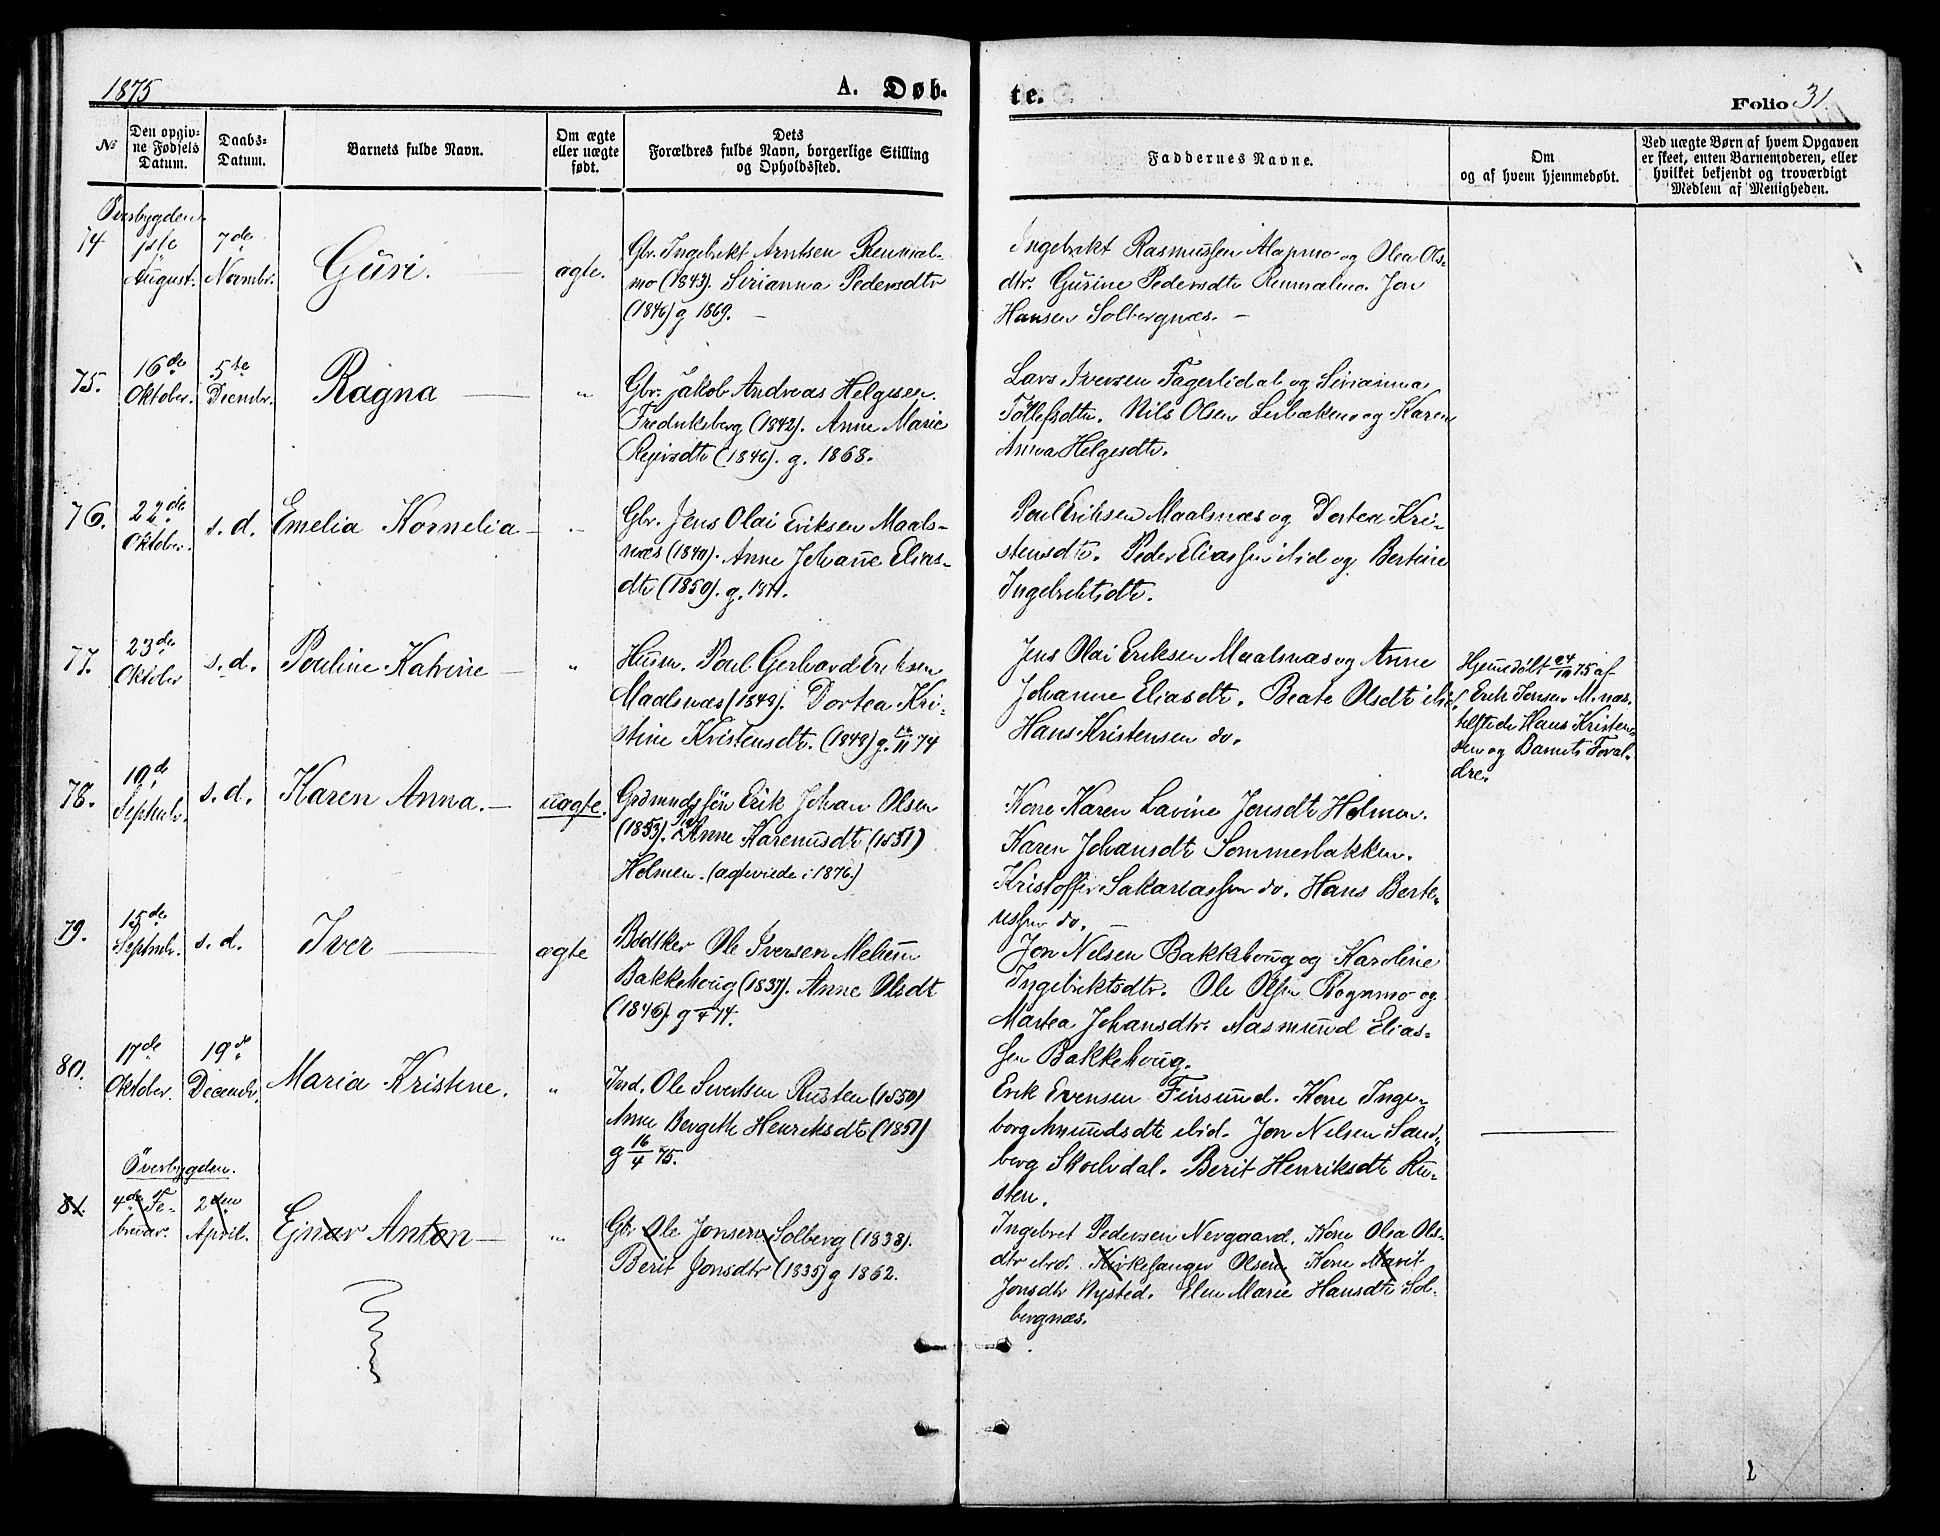 1875
A. Døb-
te.
Folio 31.
№
Den opgiv-
ne Fødsels
Datum.
Daabs-
Datum.
Barnets fulde Navn.
Om ægte
eller uægte
født.
Dets
Forældres fulde Navn, borgerlige Stilling
og Opholdssted.
Faddernes Navne.
Om
og af hvem hjemmedøbt.
Ved uægte Børn af hvem Opgaven
er skeet, enten Barnemoderen, eller
hvilket bekjendt og troværdigt
Medlem af Menigheden.
Överbygden.
74
1ste
August.
7de
Novmbr.
Guri.
ægte.
Gbr. Ingebrikt Arntsen Renmæl-
mo (1843). Sirianna Pedersdtr
(1846) g 1869. —
Ingebrikt Rasmussen Alapmo og Olea Ols-
dtr. Gurine Pedersdtr Renmælmo. Jon
Hansen Solbergnæs. —
75.
16de
Oktober.
5te
Decmbr.
Ragna —
"
Gbr. Jakob Andreas Helgesen
Fredriksberg (1842). Anne Marie
(1846). g. 1868.
Lars Iversen Fagerlidal og Sirianna
Tollefsdtr. Nils Olsen og Karen
Anna Helgesdtr.
76.
22de
Oktober.
s.d.
Emelia Kornelia —
"
Gbr. Jens Olai Eriksen Maals-
næs (1840). Anne Johanne Elias-
dtr (1850). g. 1871.
Poul Eriksen Maalsnæs og Dortea Kri-
stensdtr. Peder Eliassen ibid og Bertine
Ingebriktsdtr.
77.
23de
Oktober
s.d.
Pouline Katrine —
"
Husm. Poul Gerhard Eriksen
Maalsnæs (1848). Dortea Kri-
stine Kristensdtr. (1848) g. 74
Jens Olai Eriksen Maalsnæs og Anne
Johanne Eliasdtr. Beate Olsdtr ibid.
Hans Kristensen do.
Hjemmedøbt 24/10 75 af
Erik Jensen M.næs.
tilstede Hans Kristen-
sen og Barnets Foræl-
dre.
78.
19de
Septmbr.
s.d.
Karen Anna. —
uægte.
Grdmandssøn Erik Johan Olsen
(1853). Anne Karenusdtr (1851)
Holmen. (ægteviede i 1876.)
Kone Karen Lavine Jensdtr Holmen.
Karen Johansdtr Sommerbakken.
Kristoffer Sakariassen do. Hans Berte-
ussen do. —
79.
15de
Septmbr.
s.d.
Iver —
ægte
Bødsker Ole Iversen Melum
Bakkehoug (1837). Anne Olsdtr
(1846). g 74.
Jon Nelsen Bakkehoug og Karoline
Ingebriktsdtr. Ole Olsen Rognmo og
Martea Johansdtr. Aasmund Elias-
sen Bakkehoug.
80.
17de
Oktober.
19de
Decembr.
Maria Kristine.
"
Inds. Ole Sivertsen Rusten (1850)
Anne Bergitte Henriksdtr (1851)
g 16/4 75.
Erik Evensen Finsund. Kone Inge-
borg Amundsdtr ibid. Jon Nelsen Sand-
berg Skoelvdal. Berit Henriksdtr Ru-
sten.
Överbygden.
81.
4de Fe-
bruar.
2den
April.
Ejnar Anton —
"
Gbr Ole Jonsen Solberg (1838).
Berit Jonsdtr (1835) g 1862.
Ingebret Pedersen Nergaard. Kone Olea Ols-
dtr ibid. Kirkesanger Olsen. Kone Marit
Jonsdtr Nysted. Elen Marie Hansdtr Sol-
bergnæs.